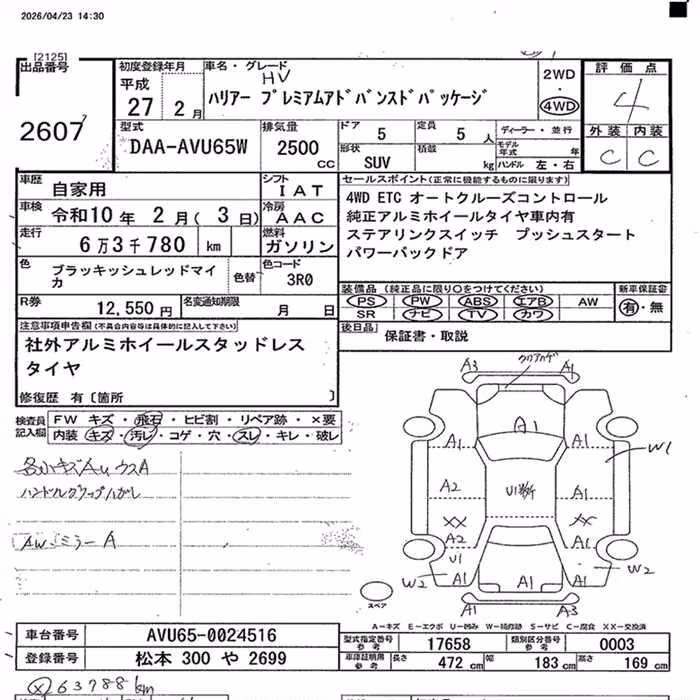 2026/04/23 14:30
[2125]
出品番号
2607
初度登録年月
平成
27 2 月
車名・グレード
HV
ハリアー プレミアムアドバンスドパッケージ
2WD
・
4WD
評価点
4
外装 内装
C C
型式
DAA-AVU65W
排気量
2500
cc
ドア 5
定員 5 人
形状 SUV
積載 kg
ディーラー・並行
モデル年式 年
ハンドル 左・右
車歴
自家用
シフト
IAT
車検
令和10 年 2 月( 3 日)
冷房
AAC
走行
6万3千780 km
燃料
ガソリン
色
ブラッキッシュレッドマイカ
色替
色コード
3R0
R券
12,550 円
名変通知期限
月 日
セールスポイント(正常に機能するものに限ります)
4WD ETC オートクルーズコントロール
純正アルミホイールタイヤ車内有
ステアリンクスイッチ プッシュスタート
パワーバックドア
装備品 (純正品に限り○をつけてください)
PS PW ABS エアB AW
SR ナビ TV カワ
新車保証書
有・無
後日品
保証書・取説
注意事項申告欄(不具合内容等は具体的に記入して下さい)
社外アルミホイールスタッドレス
タイヤ
修復歴 有〔箇所 〕
検査員
記入欄
FW キズ・飛石・ヒビ割・リペア跡・×要
内装 キズ・汚レ・コゲ・穴・スレ・キレ・破レ
各小キズAuウスA
ハンドルグリップハガレ
AWミラーA
クリアハゲ
A3 A1
A1
A1 A1
W1
A2 A1
XX XX
A2 A1
U1
W2 W2
A1 A1 A1
A1 A3
スペア
A-キズ E-エクボ U-凹み W-補修跡 S-サビ C-腐食 XX-交換済
車台番号
AVU65-0024516
登録番号
松本 300 や 2699
型式指定番号
参考
17658
類別区分番号
参考
0003
車庫証明用
参考
長さ 472 cm 幅 183 cm 高さ 169 cm
63788km